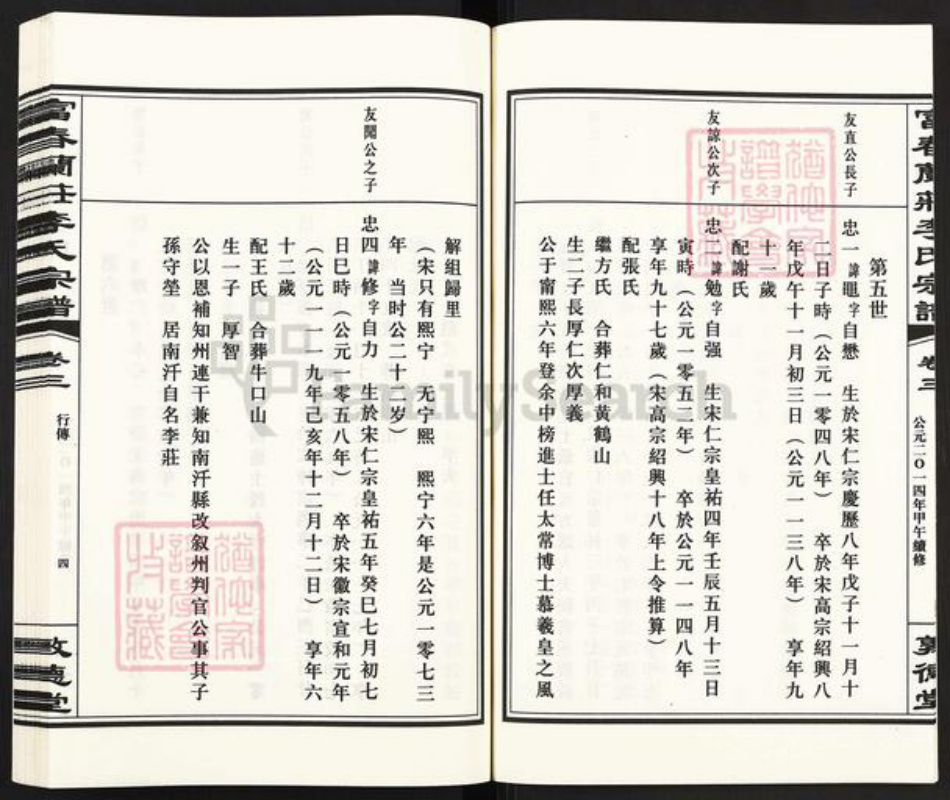 富春蘭莊李氏宗譜
卷三
公元二〇一四年甲午續修
敦德堂
第五世
友直公長子
忠一 諱黽字自懋 生於宋仁宗慶歷八年戊子十一月十
二日子時（公元一零四八年） 卒於宋高宗紹興八
年戊午十一月初三日（公元一一三八年） 享年九
十一歲
配謝氏
友諒公次子
忠二 諱勉字自强 生宋仁宗皇祐四年壬辰五月十三日
寅時（公元一零五二年） 卒於公元一一四八年
享年九十七歲（宋高宗紹興十八年上令推算）
配張氏
繼方氏 合葬仁和黃鶴山
生二子長厚仁次厚義
公于甯熙六年登余中榜進士任太常博士慕羲皇之風
解組歸里
（宋只有熙宁 无宁熙 熙宁六年是公元一零七三
年 当时公二十二岁）
友聞公之子
忠四 諱修字自力 生於宋仁宗皇祐五年癸巳七月初七
日巳時（公元一零五八年） 卒於宋徽宗宣和元年
（公元一一一九年己亥年十二月十二日） 享年六
十二歲
配王氏 合葬牛口山
生一子 厚智
公以恩補知州連干兼知南汧縣改叙州判官公事其子
孫守塋 居南汧自名李莊
富春蘭莊李氏宗譜
卷三
行傳
四
敦德堂
FamilySearch